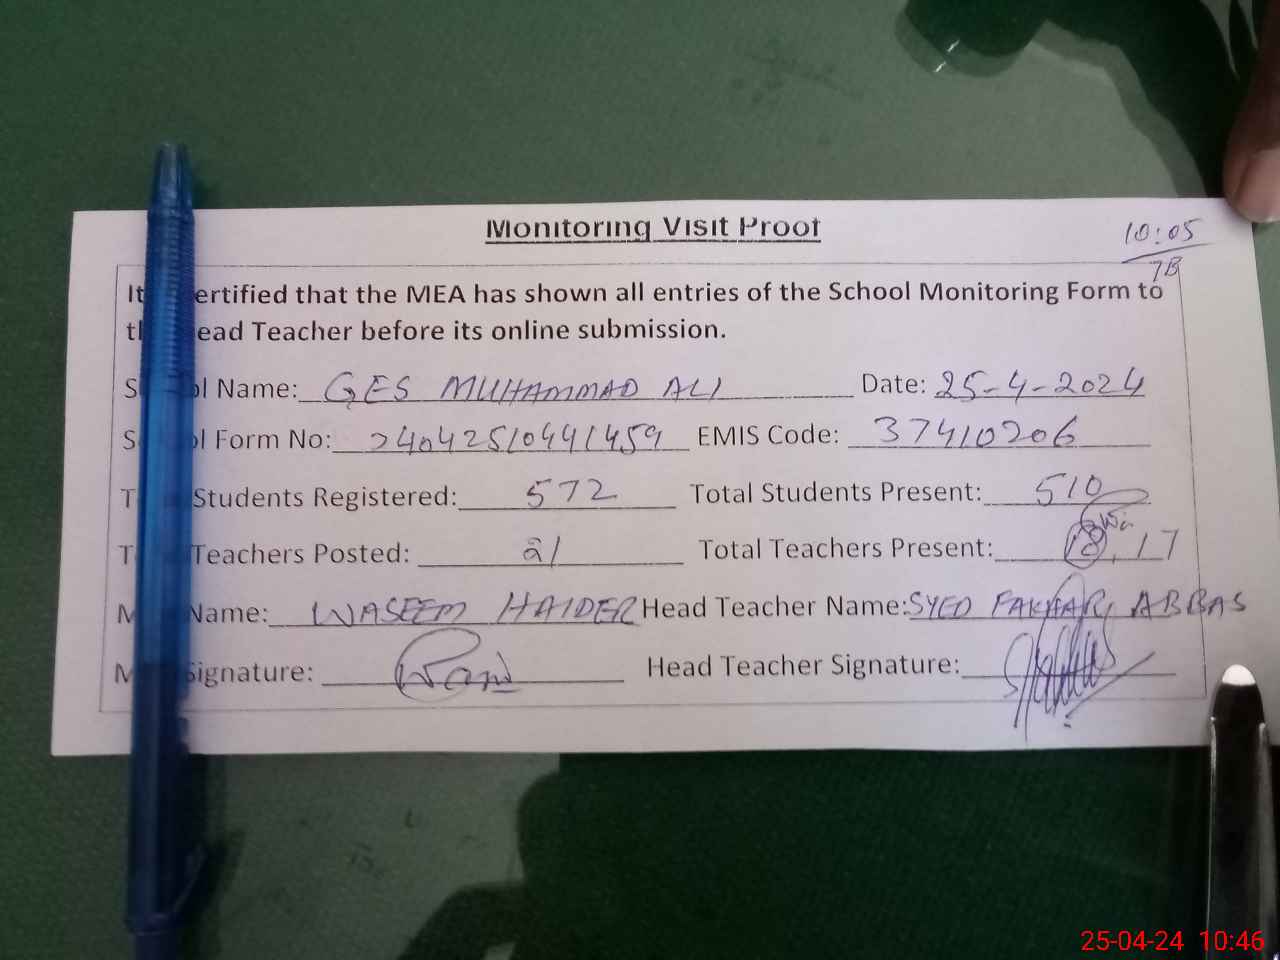 Monitoring Visit Proof
10:05
7B
It ertified that the MEA has shown all entries of the School Monitoring Form to
t ead Teacher before its online submission.
S l Name: GES MUHAMMAD ALI Date: 25-4-2024
S l Form No: 24042510441459 EMIS Code: 37410206
T Students Registered: 572 Total Students Present: 510
T Teachers Posted: 21 Total Teachers Present: 18, 17
M Name: WASEEM HAIDER Head Teacher Name: SYED FAKHAR ABBAS
M Signature: Head Teacher Signature:
25-04-24 10:46